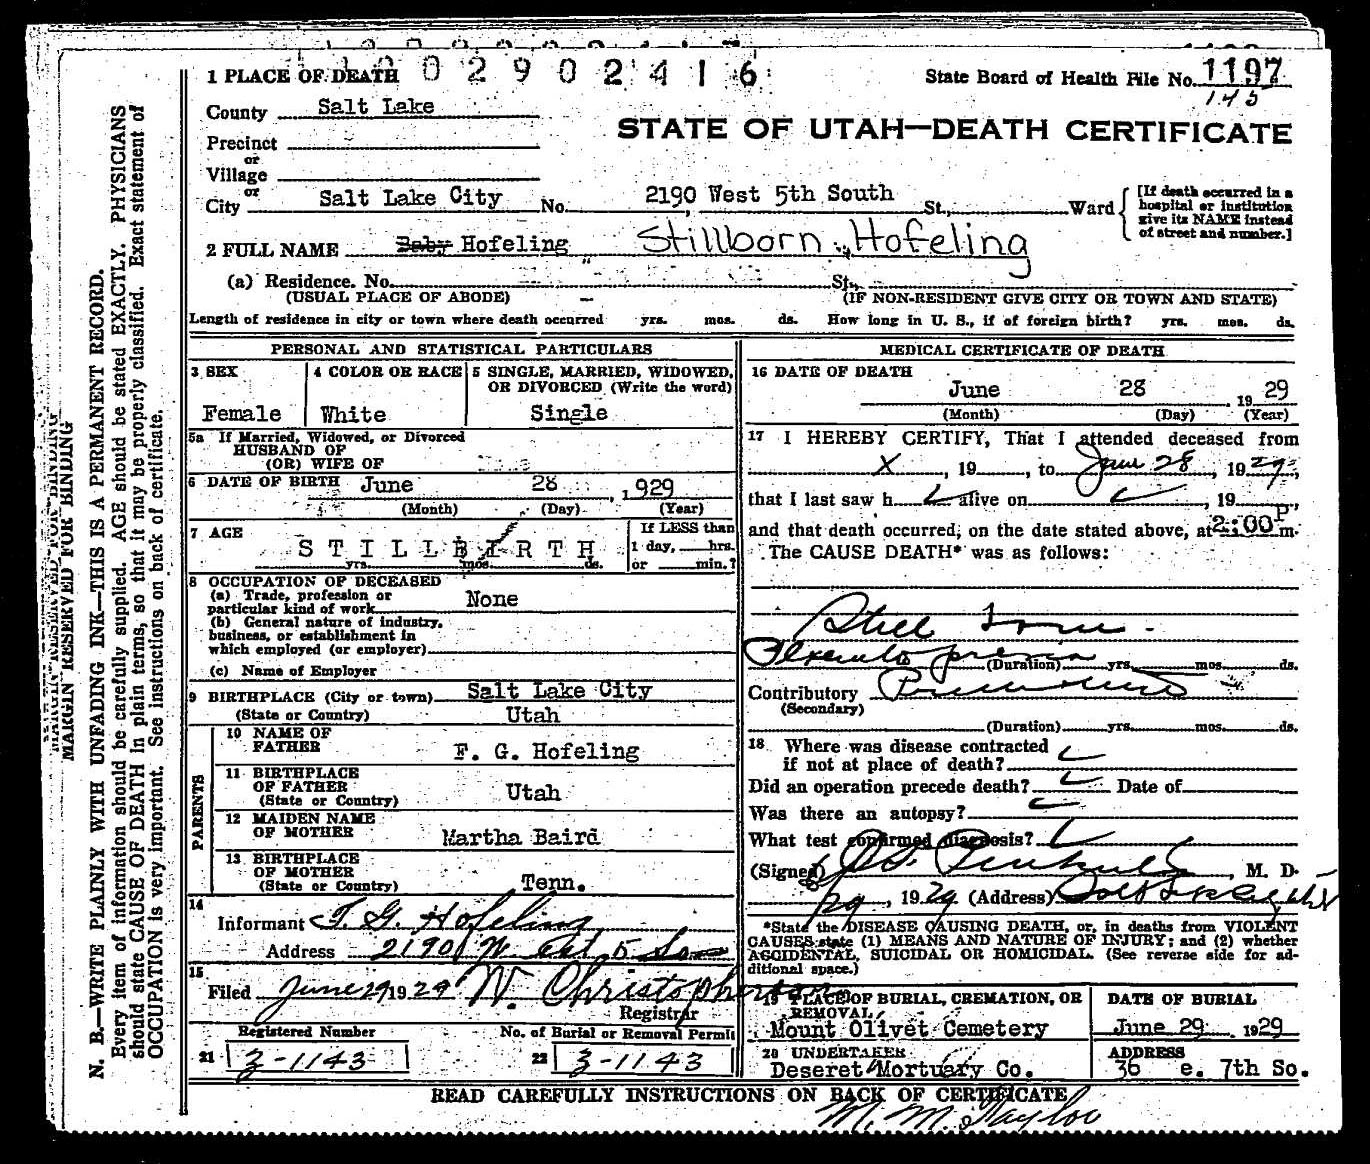 0 0 2 9 0 2 4 1 6
1 PLACE OF DEATH
State Board of Health File No. 1197
145
County Salt Lake
STATE OF UTAH—DEATH CERTIFICATE
Precinct
or
Village
or
City Salt Lake City No. 2190 West 5th South St., Ward
[If death occurred in a hospital or institution give its NAME instead of street and number.]
2 FULL NAME Baby Hofeling Stillborn Hofeling
(a) Residence. No. St.,
(USUAL PLACE OF ABODE) (IF NON-RESIDENT GIVE CITY OR TOWN AND STATE)
Length of residence in city or town where death occurred yrs. mos. ds. How long in U. S., if of foreign birth? yrs. mos. ds.
PERSONAL AND STATISTICAL PARTICULARS
3 SEX
Female
4 COLOR OR RACE
White
5 SINGLE, MARRIED, WIDOWED,
OR DIVORCED (Write the word)
Single
5a If Married, Widowed, or Divorced
HUSBAND OF
(OR) WIFE OF
6 DATE OF BIRTH June 28, 1929
(Month) (Day) (Year)
7 AGE
STILLBIRTH
yrs. mos. ds.
If LESS than
1 day, hrs.
or min.?
8 OCCUPATION OF DECEASED
(a) Trade, profession or
particular kind of work None
(b) General nature of industry,
business, or establishment in
which employed (or employer)
(c) Name of Employer
9 BIRTHPLACE (City or town) Salt Lake City
(State or Country) Utah
PARENTS
10 NAME OF
FATHER F. G. Hofeling
11 BIRTHPLACE
OF FATHER
(State or Country) Utah
12 MAIDEN NAME
OF MOTHER Martha Baird
13 BIRTHPLACE
OF MOTHER
(State or Country) Tenn.
14
Informant F. G. Hofeling
Address 2190 W 5 So
15
Filed June 29 1929 W. Christopherson
Registrar
Registered Number
21 3-1143
No. of Burial or Removal Permit
22 3-1143
MEDICAL CERTIFICATE OF DEATH
16 DATE OF DEATH
June 28, 1929
(Month) (Day) (Year)
17 I HEREBY CERTIFY, That I attended deceased from
X, 19, to June 28, 1929,
that I last saw h alive on, 19,
and that death occurred, on the date stated above, at 2:00 P. m.
The CAUSE DEATH* was as follows:
Still born.
(Duration) yrs. mos. ds.
Contributory
(Secondary)
(Duration) yrs. mos. ds.
18 Where was disease contracted
if not at place of death?
Did an operation precede death? Date of
Was there an autopsy?
What test confirmed diagnosis?
(Signed), M. D.
, 1929 (Address)
*State the DISEASE CAUSING DEATH, or, in deaths from VIOLENT
CAUSES state (1) MEANS AND NATURE OF INJURY; and (2) whether
ACCIDENTAL, SUICIDAL OR HOMICIDAL. (See reverse side for ad-
ditional space.)
19 PLACE OF BURIAL, CREMATION, OR
REMOVAL
Mount Olivet Cemetery
DATE OF BURIAL
June 29 1929
20 UNDERTAKER
Deseret Mortuary Co.
ADDRESS
36 e. 7th So.
READ CAREFULLY INSTRUCTIONS ON BACK OF CERTIFICATE
M. M. Taylor
MARGIN RESERVED FOR BINDING
N. B.—WRITE PLAINLY WITH UNFADING INK—THIS IS A PERMANENT RECORD.
Every item of information should be carefully supplied. AGE should be stated EXACTLY. PHYSICIANS
should state CAUSE OF DEATH in plain terms, so that it may be properly classified. Exact statement of
OCCUPATION is very important. See instructions on back of certificate.